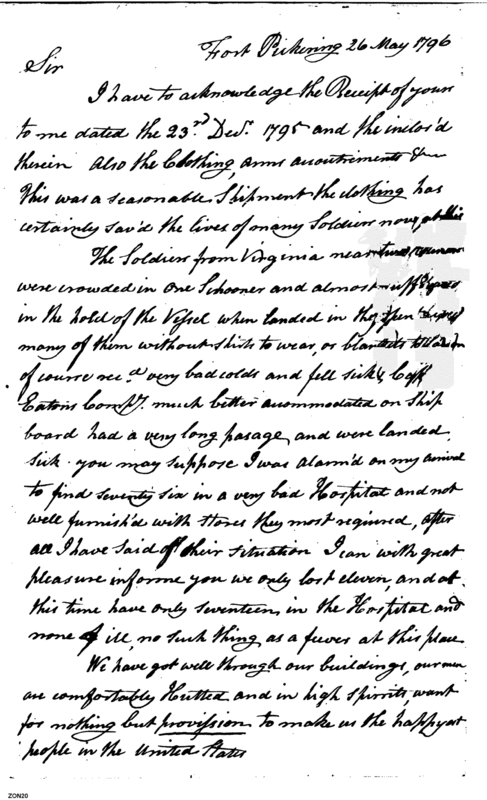 Fort Pickering 26 May 1796
Sir
I have to acknowledge the Receipt of yours
to me dated the 23rd Decr. 1795 and the inclos'd
therein also the Clothing, arms accoutrements &c
This was a seasonable Shipment the clothing has
certainly sav'd the lives of many Soldiers now at this
The Soldiers from Virginia near
were crowded in one Schooner and almost
in the hold of the Vessel when landed in the open
many of them without shirts to wear, or blankets
of course recd very bad colds and fell sick,
Eatons Compy. much better acommodated on Ship
board had a very long pasage, and were landed
sick. you may suppose I was alarm'd on my arrival
to find seventy six in a very bad Hospital and not
well furnish'd with stores they most required, after
all I have said of their situation I can with great
pleasure informe you we only lost eleven, and at
this time have only seventeen in the Hospital and
none of ill, no such thing as a feever at this place
We have got well through our buildings, our men
are comfortably Hutted and in high spirrits, want
for nothing but provission to make us the happyest
people in the United States
ZON20